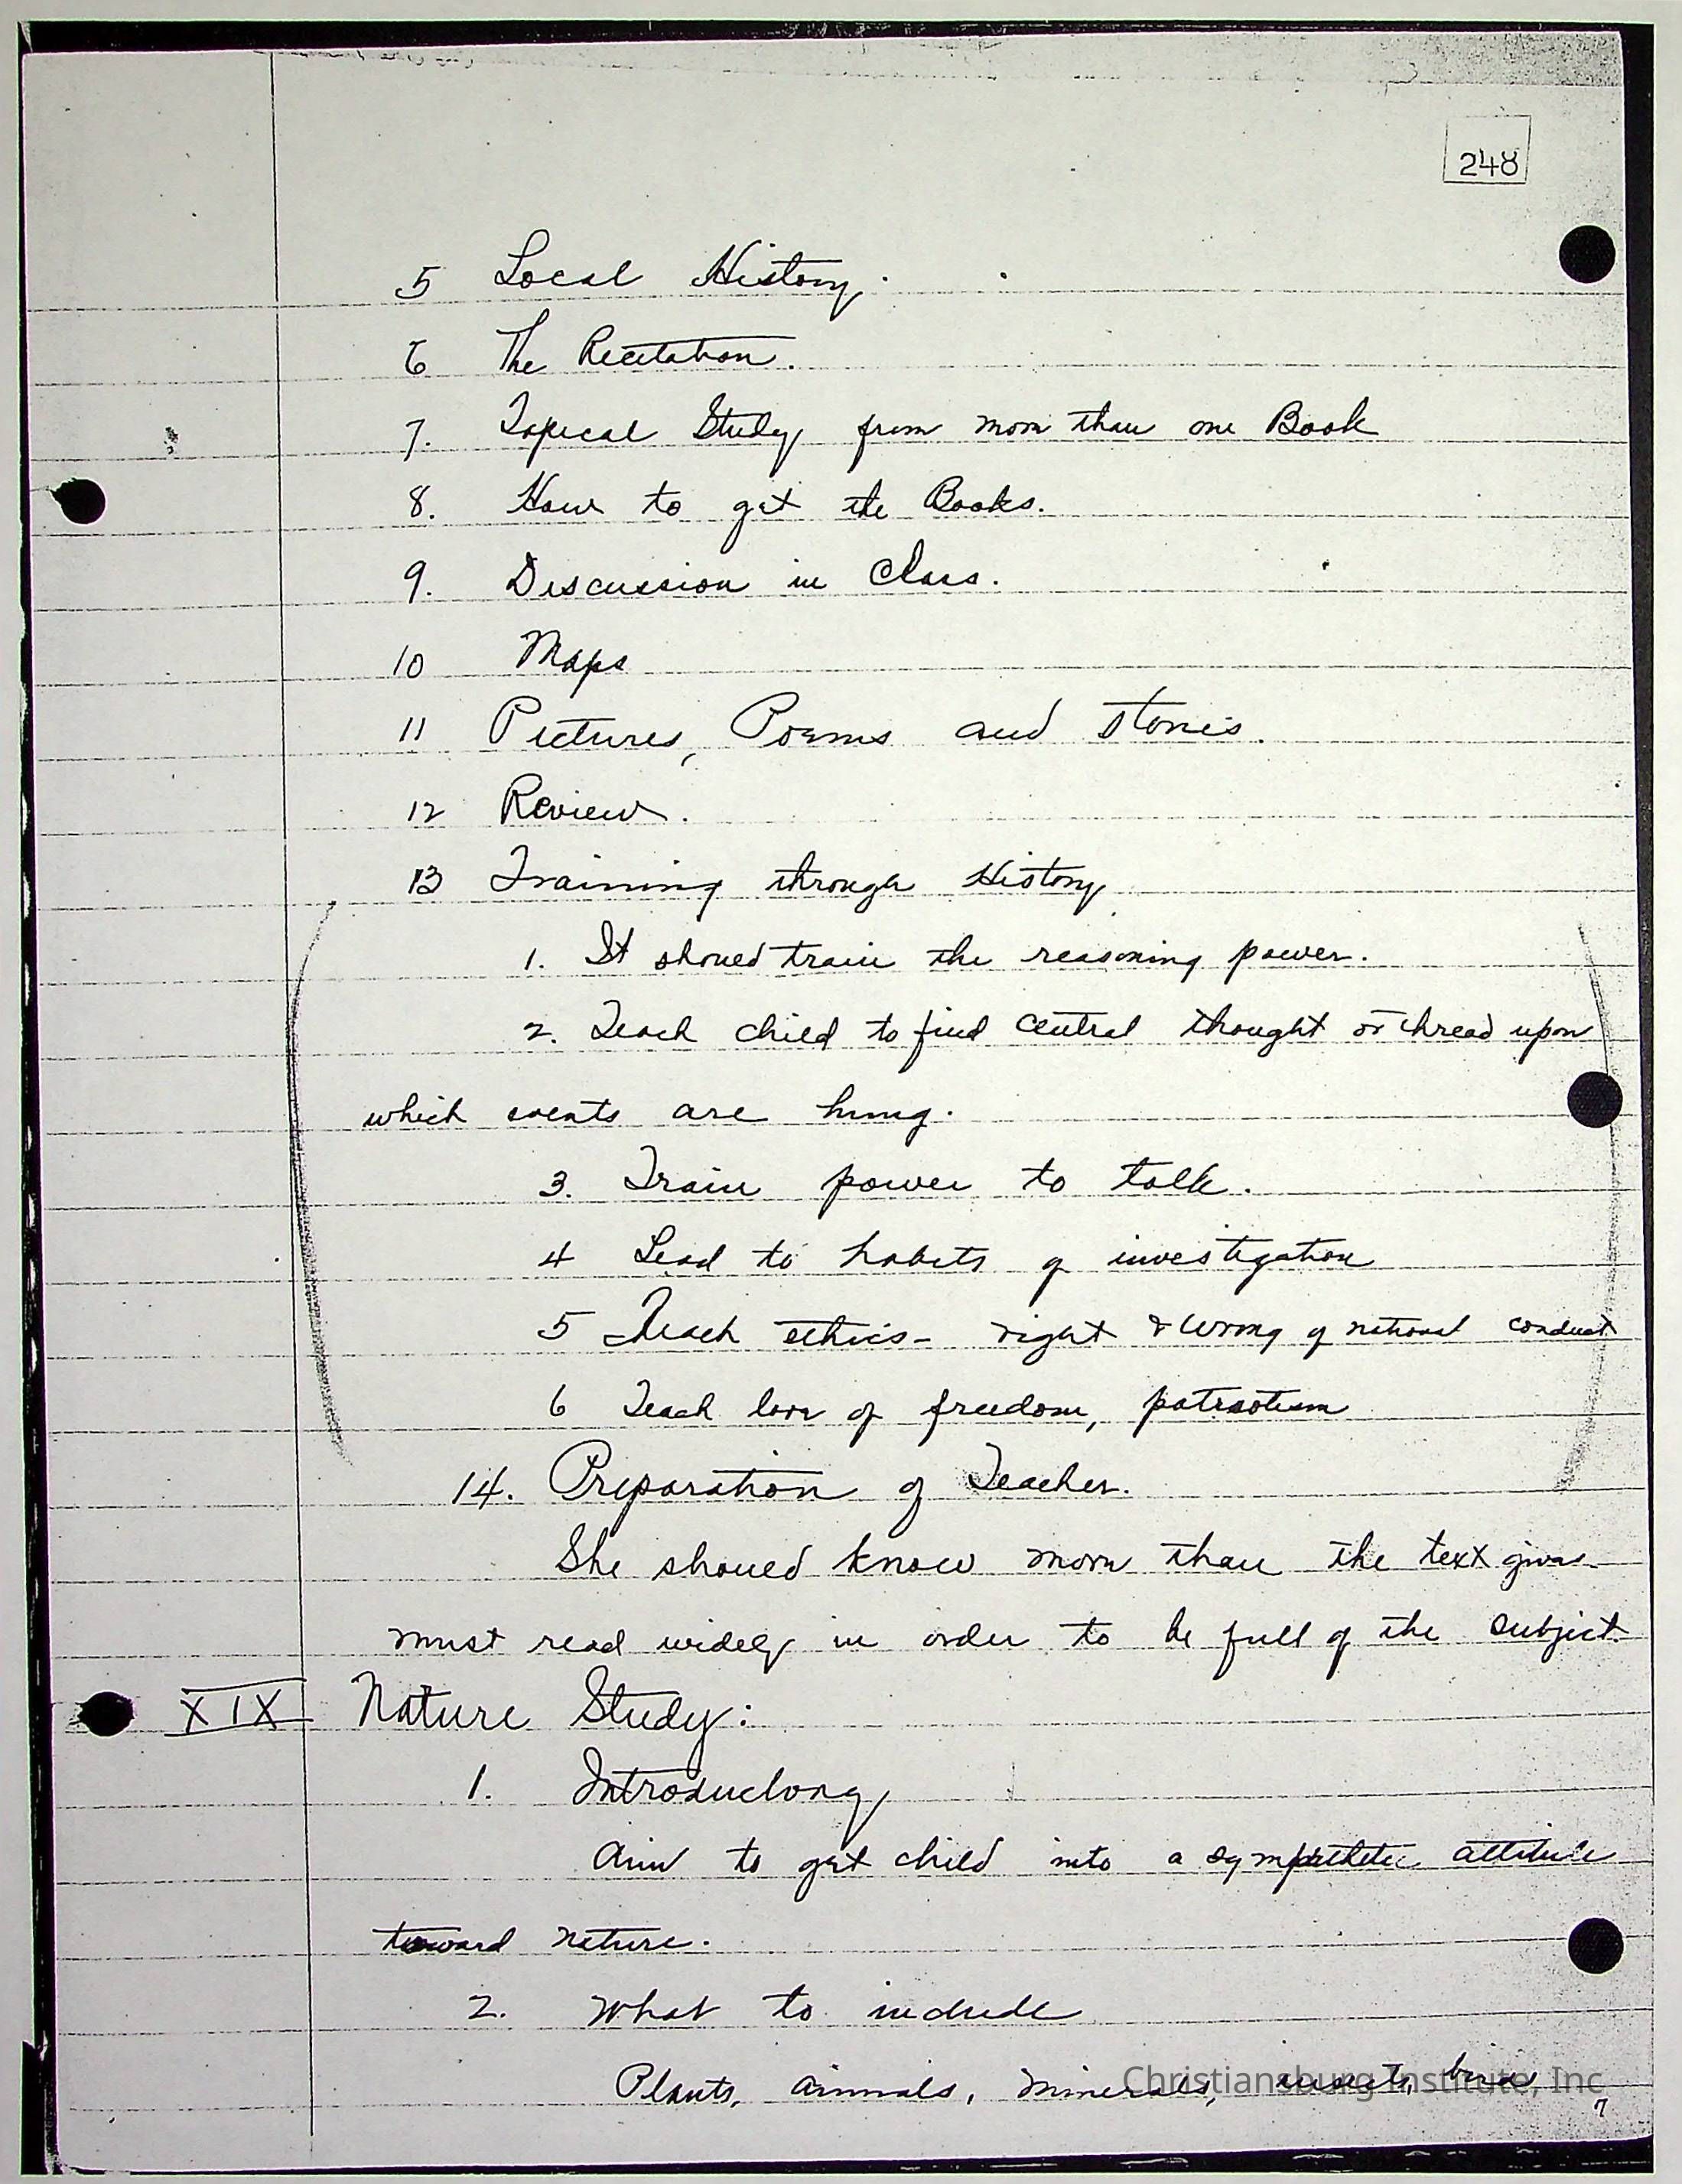 248
5 Local History.
6 The Recitation.
7. Topical Study from more than one Book
8. How to get the Books.
9. Discussion in Class.
10 Maps
11 Pictures, Poems and stories.
12 Review.
13 Training through History
1. It should train the reasoning power.
2. Teach child to find central thought or thread upon
which events are hung.
3. Train power to talk.
4 Lead to habits of investigation
5 Teach ethics - right & wrong of national conduct
6 Teach love of freedom, patriotism
14. Preparation of Teacher.
She should know more than the text gives
must read widely in order to be full of the subject.
XIX Nature Study:
1. Introductory
Aim to get child into a sympathetic attitude
toward nature.
2. What to include
Plants, animals, minerals, insects, birds
Christiansburg Institute, Inc
7